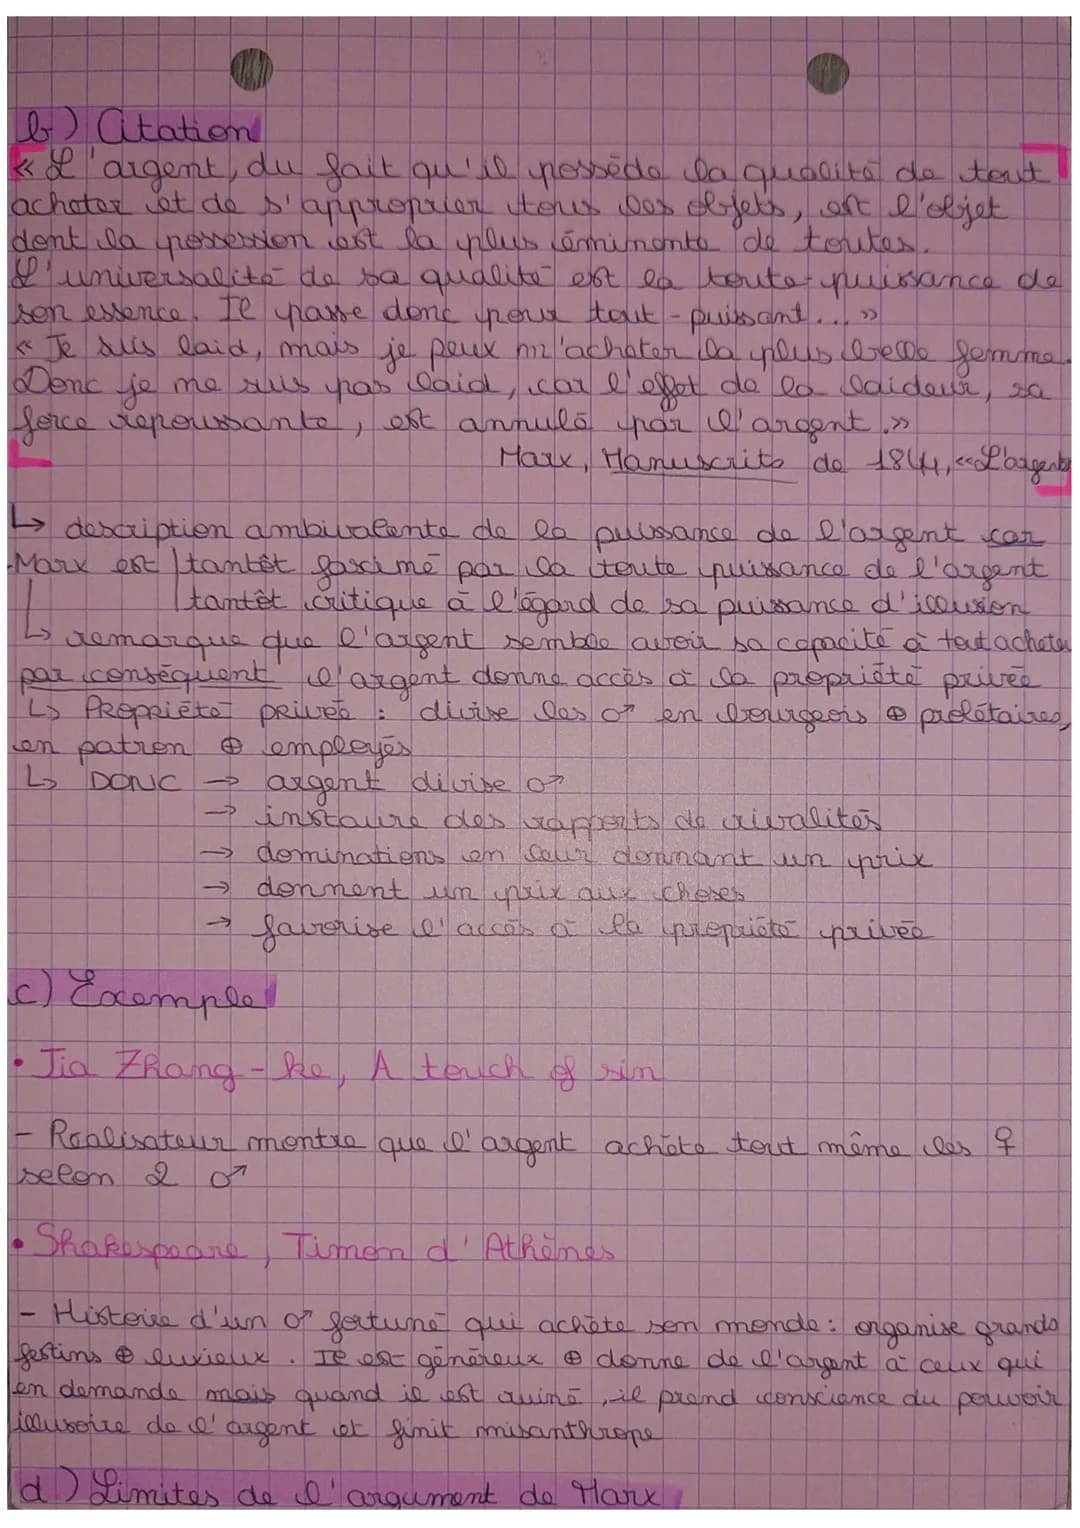 b) Citation
« L'argent, du fait qu'il possède la qualité de tout
acheter et de s'approprier tous les objets, est l'objet
dont la possession est la plus éminente de toutes.
L'universalité de sa qualité est la toute-puissance de
son essence. Il passe donc pour tout-puissant... »
« Je suis laid, mais je peux m'acheter la plus belle femme.
Donc je me suis pas laid, car l'effet de la laideur, sa
force repoussante, est annulé par l'argent.»
Marx, Manuscrits de 1844, «L'argent»
↳ description ambivalente de la puissance de l'argent car
Marx est tantôt fasciné par la toute puissance de l'argent
tantôt critique à l'égard de sa puissance d'illusion
↳ remarque que l'argent semble avoir sa capacité à tout acheter
par conséquent l'argent donne accès à la propriété privée
↳ Propriété privée : divise les ♂ en bourgeois ⊕ prolétaires,
en patron ⊕ employés
↳ DONC → argent divise ♂
→ instaure des rapports de rivalités
→ dominations en leur donnant un prix
→ donnent un prix aux choses
→ favorise l'accès à la propriété privée
c) Exemple
• Jia Zhang-ke, A touch of sin
- Réalisateur montre que l'argent achète tout même les ♀
selon 2 ♂
• Shakespeare, Timon d'Athènes
- Histoire d'un ♂ fortuné qui achète son monde : organise grands
festins ⊕ luxieux. Il est généreux ⊕ donne de l'argent à ceux qui
en demande mais quand il est ruiné, il prend conscience du pouvoir
illusoire de l'argent et finit misanthrope
d) Limites de l'argument de Marx